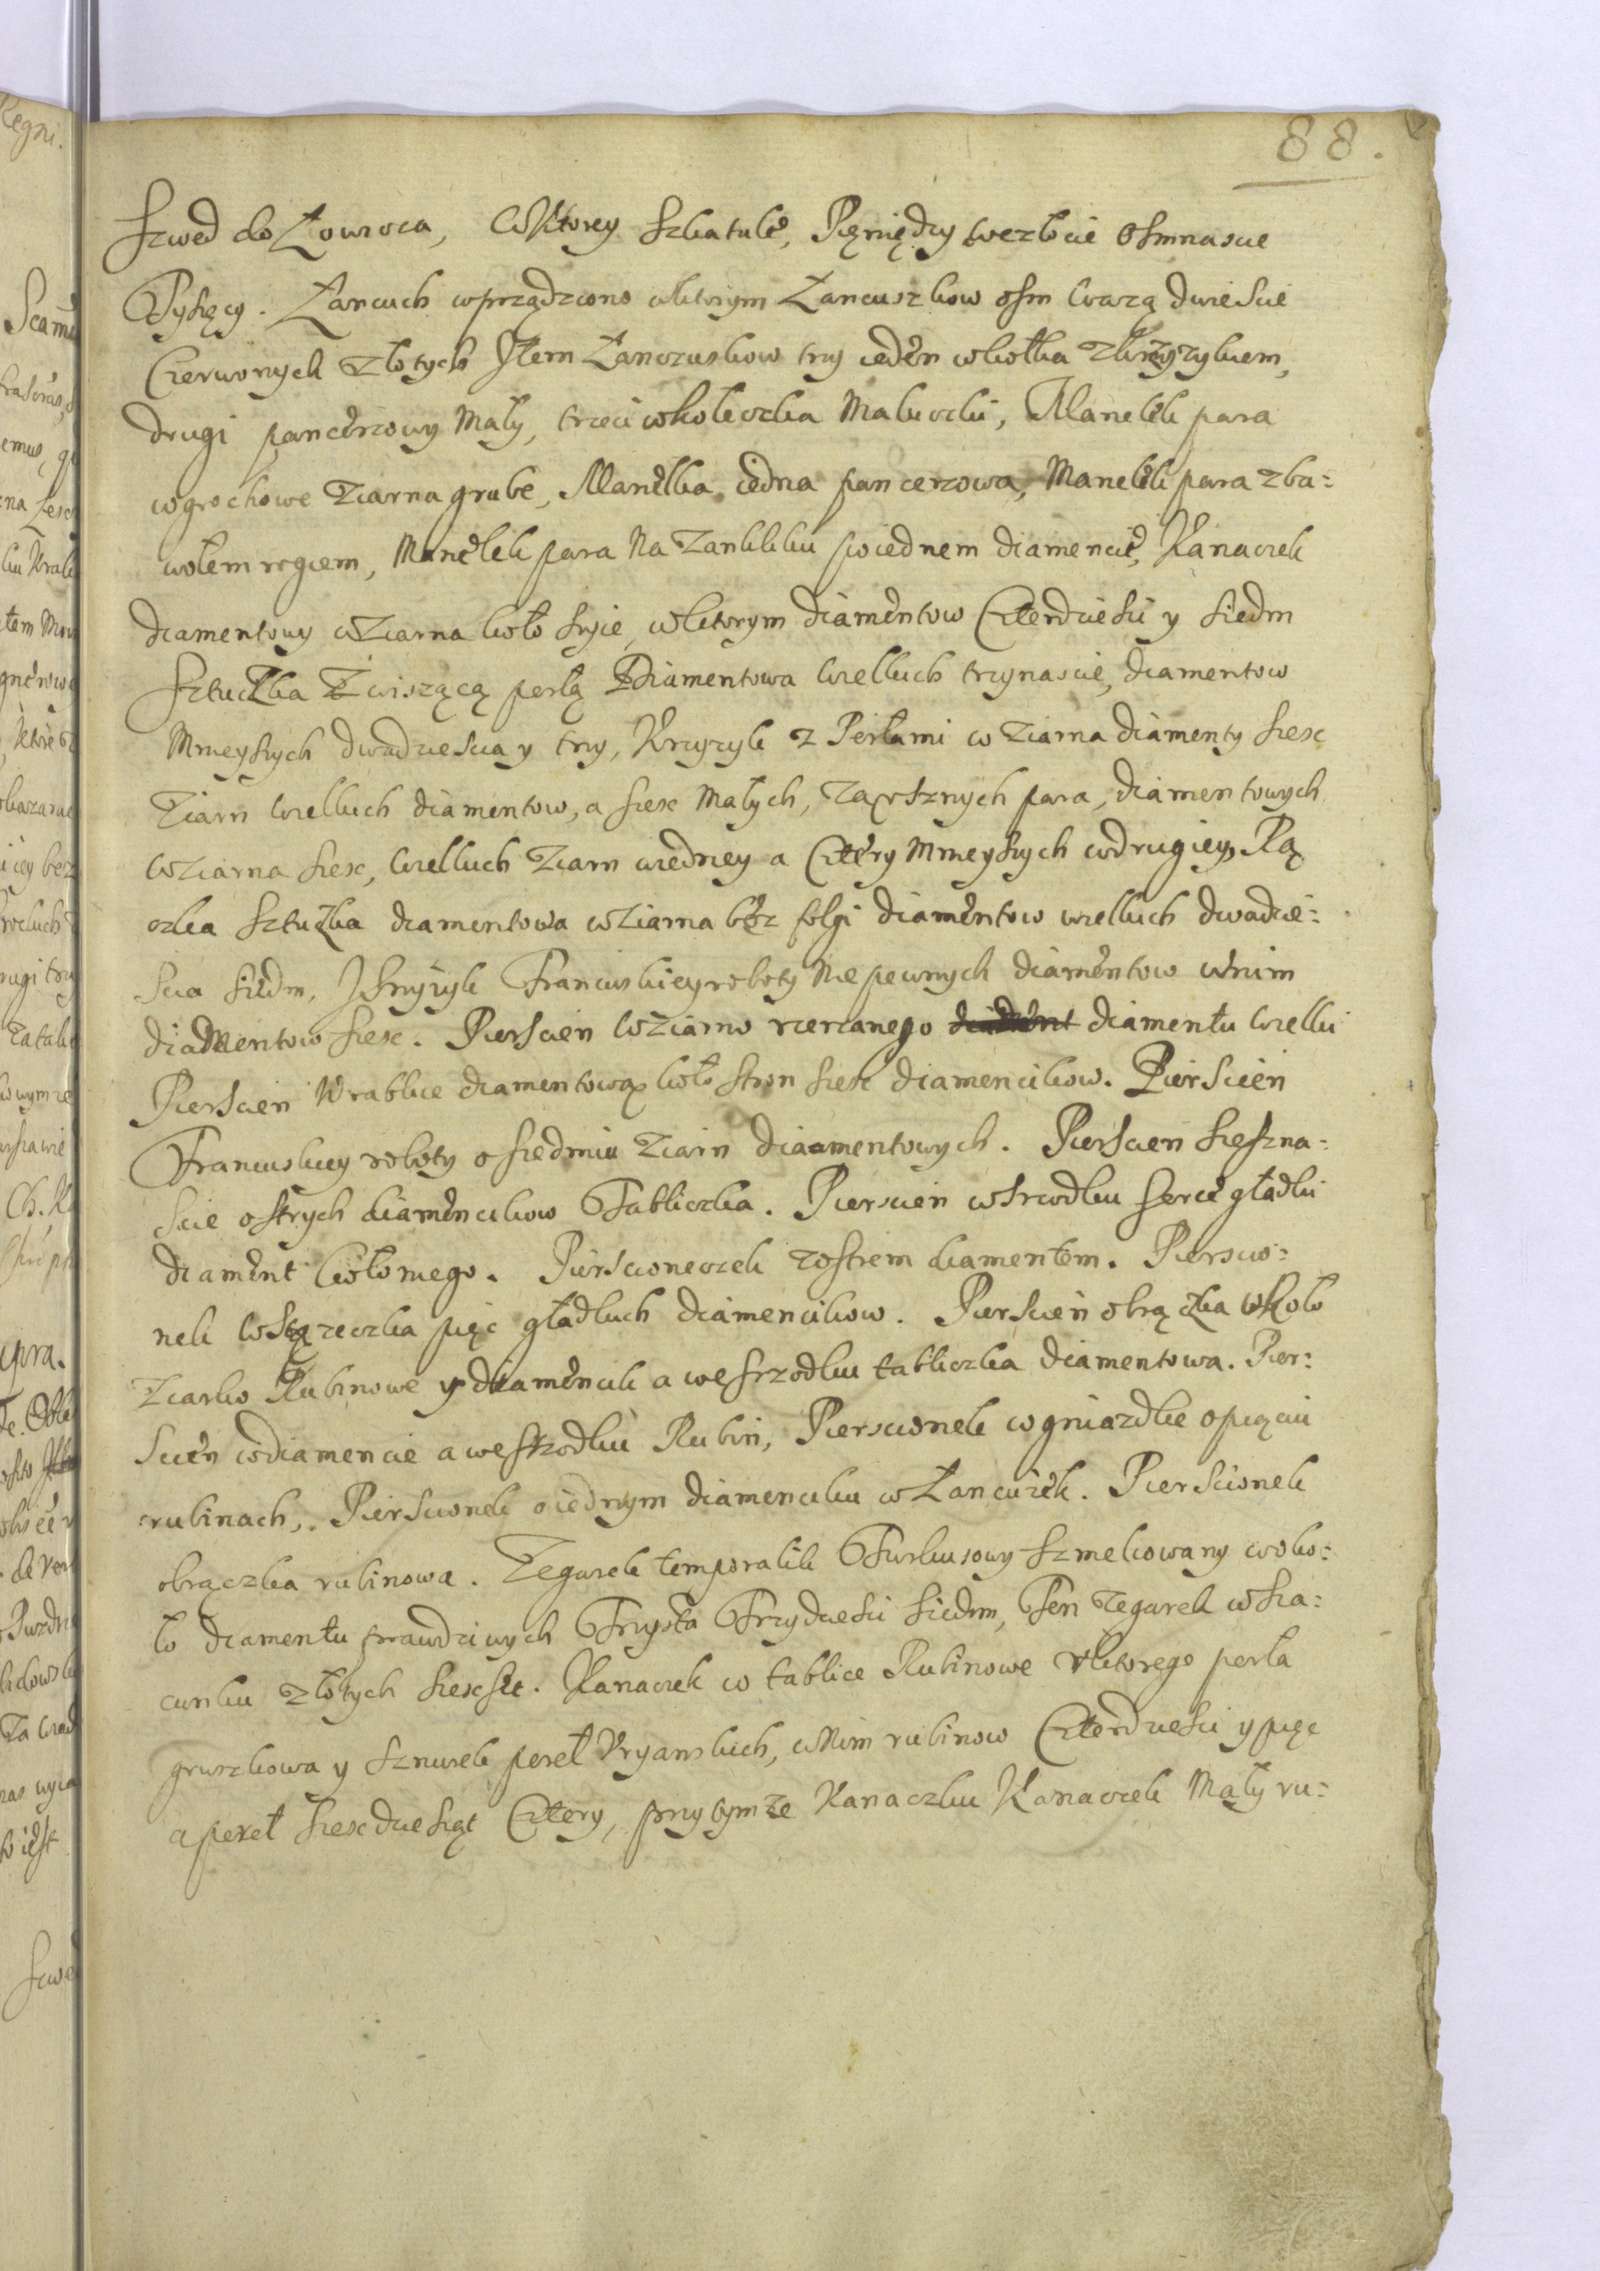 88.
Szwed do Łowicza, W Ktorey Szkatule, Pięniędzy wezłocie Osmnascie
Tysięcy. Łancuch wprządziono wktorym Łancuszkow osm Wazą dwiescie
Czerwonych złotych Item Łanczuskow trzy ieden wkołka zkrzyzykiem,
drugi pancerzowy Mały, trzeci wkołeczka Maluczki, Manelek para
wgrochowe Ziarna grube, Manelka iedna pancerzowa, Manelek para zba=
wołem rogiem, Manelek para Na Zankliku poiednem diamencie, Kanaczek
diamentowy w Ziarna koło szyie, wktorym diamentow Czterdziesci y siedm
Sztuczka Zwiszącą perłą Diamentowa Wielkich trzynascie, diamentow
Mnieyszych dwadziescia y trzy, Krzyzyk z Perłami w Ziarna diamenty szesc
Ziarn Wielkich diamentow, a szesc Małych, Zausznych para, diamentowych
W Ziarna szesc, Wielkich Ziarn wiedney a Cztery Mnieyszych wdrugiey, Rą
czka Sztuczka diamentowa w Ziarna bez folgi diamentow wielkich dwadzie=
scia siedm, Krzyzyk Francuskiey roboty Niepewnych diamentow wnim
diamentow szesc. Pierscien W Ziarno rzerzanego diamentu Wielki
Pierscien W tablice diamentową koło stron szesc diamencikow. Pierscien
Francuskiey roboty o siedmiu Ziarn diaamentowych. Pierscien szeszna=
scie ostrych diamencikow Tabliczka. Pierscien wsrzodku serce gładki
diament Kołomego. Pierscioneczek zostrem diamentem. Pierscio=
nek W Sczęzeczka pięc gładkich diamencikow. Pierscien obrączka Wkoło
Ziarko Rubinowe y diamencik a we srzodku tabliczka diamentowa. Pier=
scien wdiamencie aweszrodku Rubin, Pierscionek wgniazdke opięciu
rubinach,. Pierscionek oiednym diamenciku w Łancuzek. Pierscionek
obrączka rubinowa. Zegarek temporalik Turkusowy szmelcowany woko=
ło diamentu prawdziwych Trzysta Trzydziesci siedm, Ten Zegarek w sza=
cunku złotych szescset. Kanaczek w tablice Rubinowe Vktorego perła
gruszkowa y sznurek pereł Vryanskich, wNim rubinow Czterdziesci y pięc
a pereł szescdziesiąt Cztery, przytymze Kanaczku Kanaczek Mały ru=